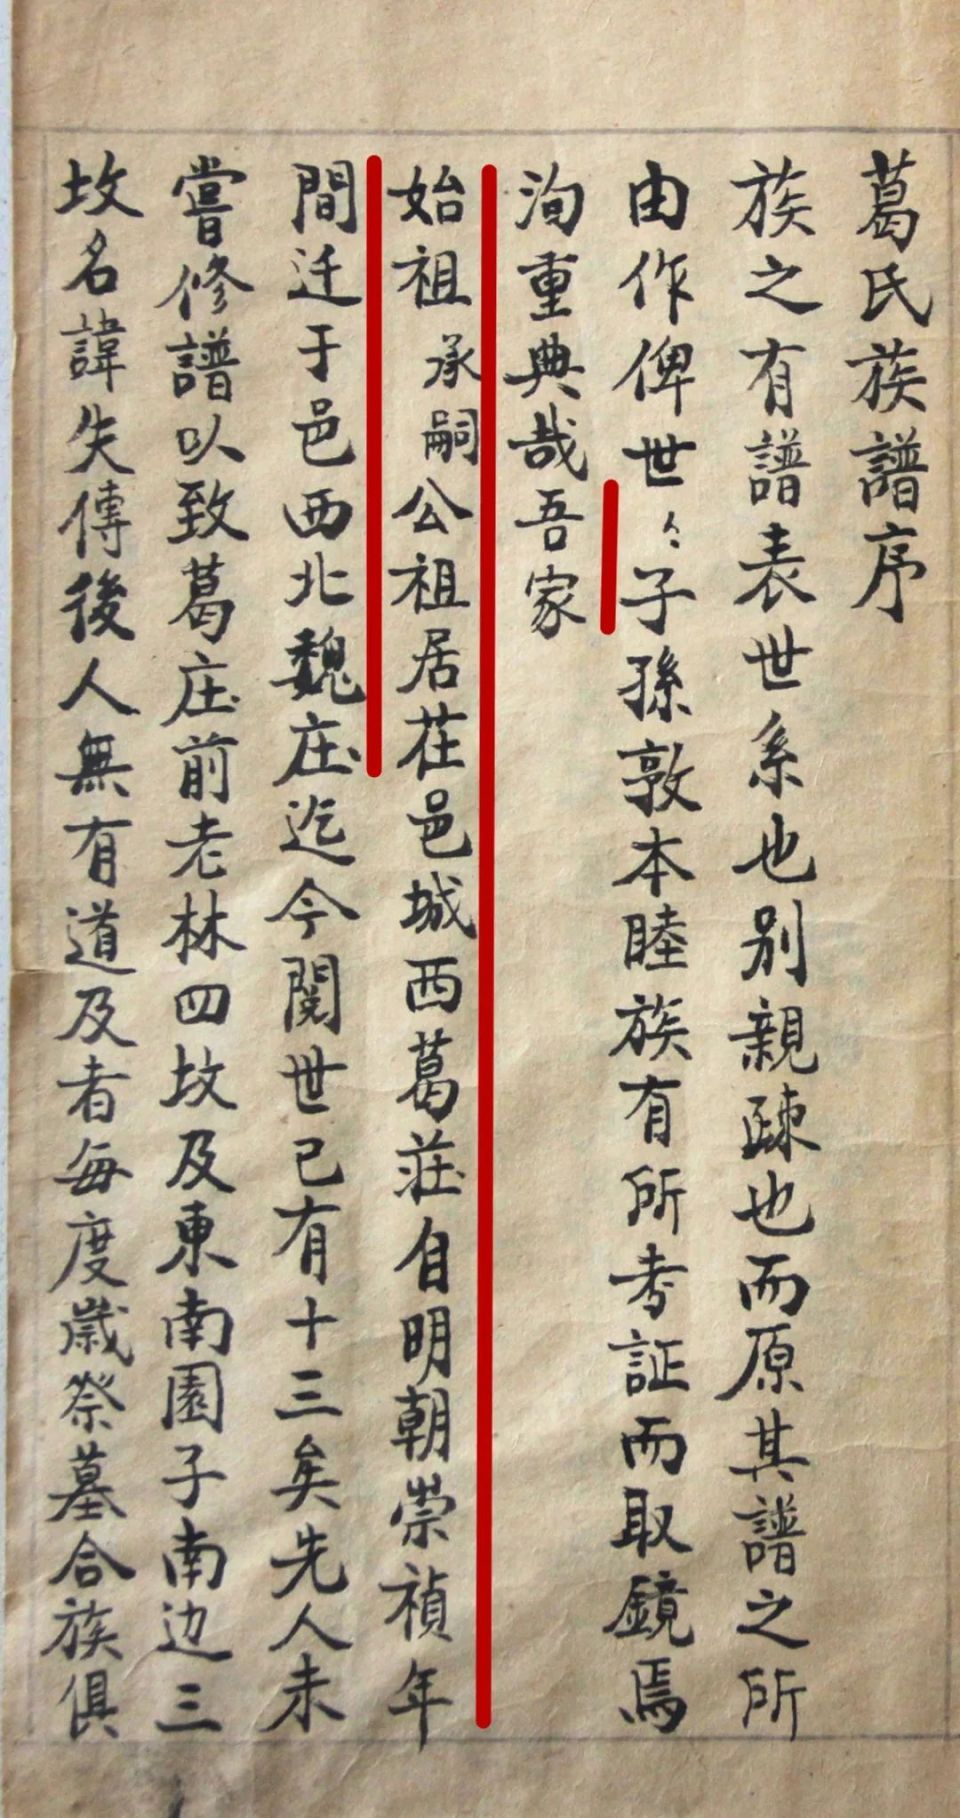 葛氏族譜序
族之有譜表世系也別親疎也而原其譜之所
由作俾世々子孫敦本睦族有所考証而取鏡焉
洵重典哉吾家
始祖承嗣公祖居茌邑城西葛莊自明朝崇禎年
間迁于邑西北魏庄迄今閱世已有十三矣先人未
嘗修譜以致葛庄前老林四坟及東南園子南边三
坟名諱失傳後人無有道及者每度歲祭墓合族俱